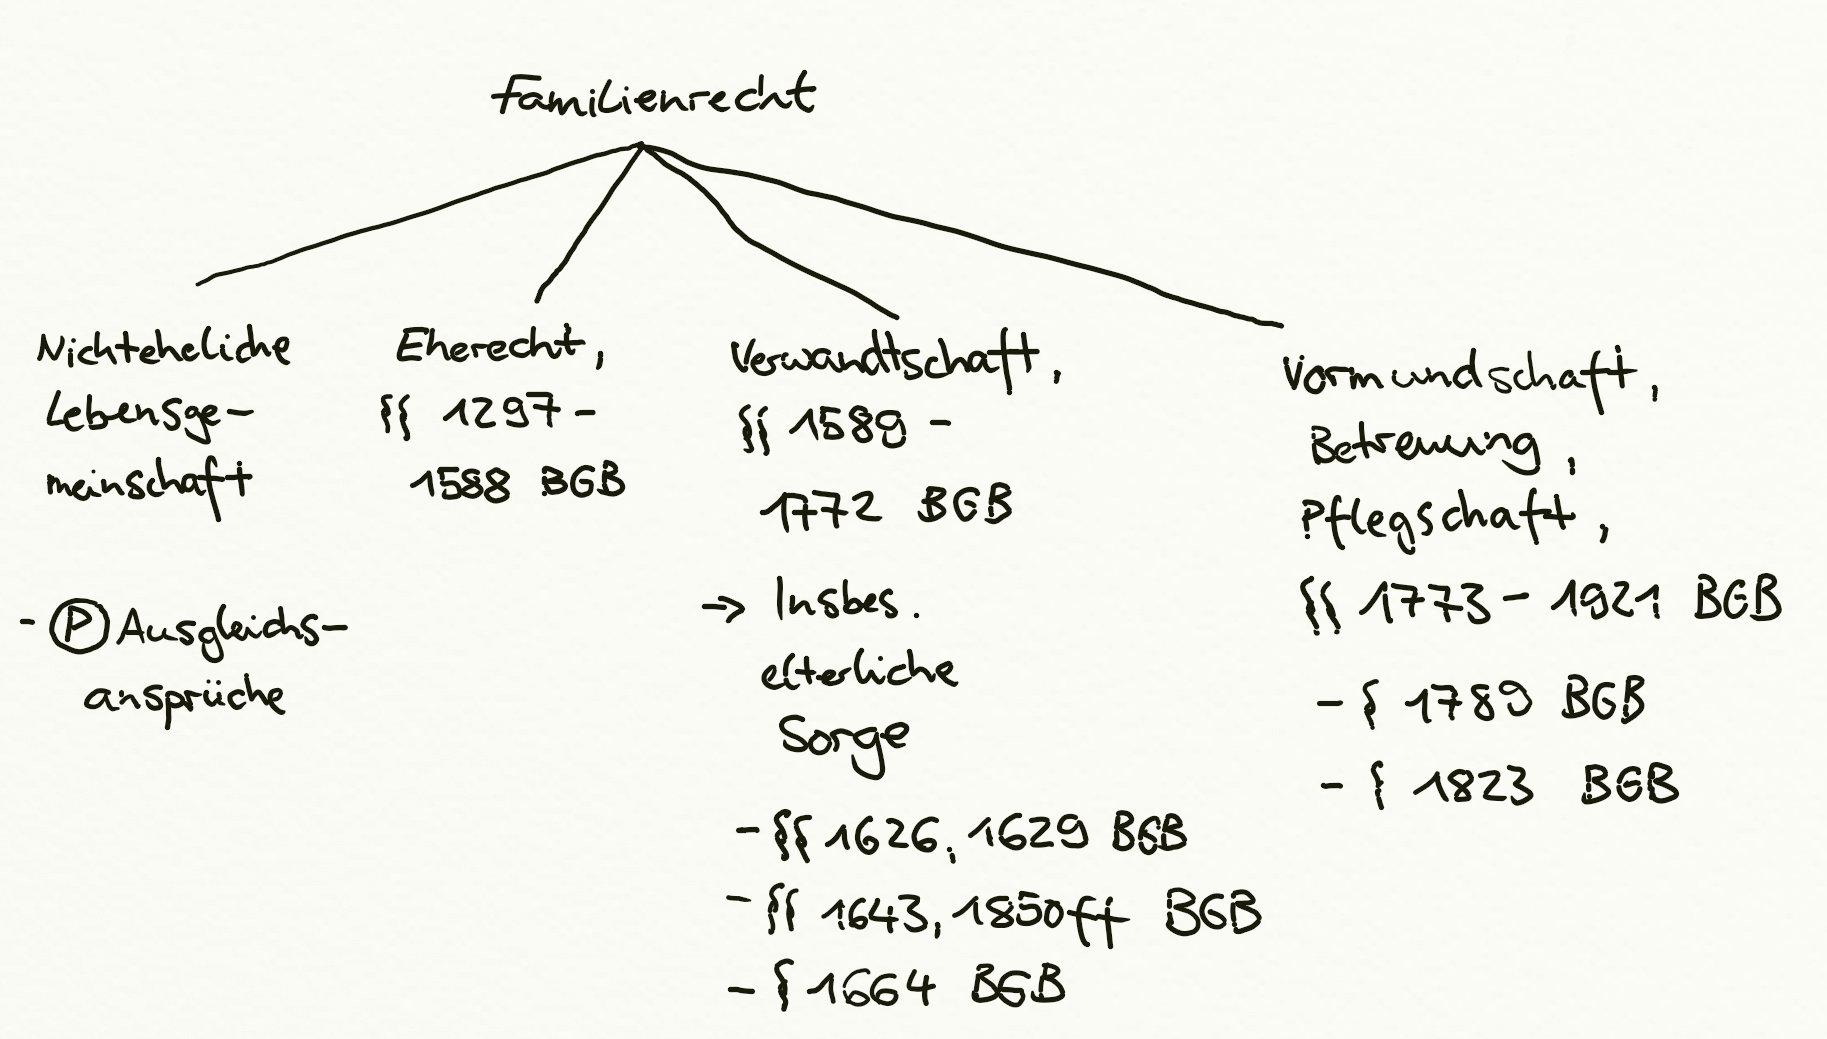 Familienrecht
Nichteheliche
Lebensge-
meinschaft
- Ⓟ Ausgleichs-
ansprüche
Eherecht,
§§ 1297 -
1588 BGB
Verwandtschaft,
§§ 1589 -
1772 BGB
→ Insbes.
elterliche
Sorge
- §§ 1626, 1629 BGB
- §§ 1643, 1850ff BGB
- § 1664 BGB
Vormundschaft,
Betreuung,
Pflegschaft,
§§ 1773 - 1921 BGB
- § 1789 BGB
- § 1823 BGB